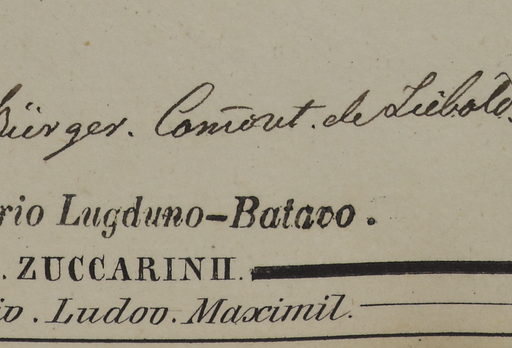 Bürger. Com̄unt. de Siebold.
rio Lugduno-Batavo.
. ZUCCARINII.
iv. Ludov. Maximil.